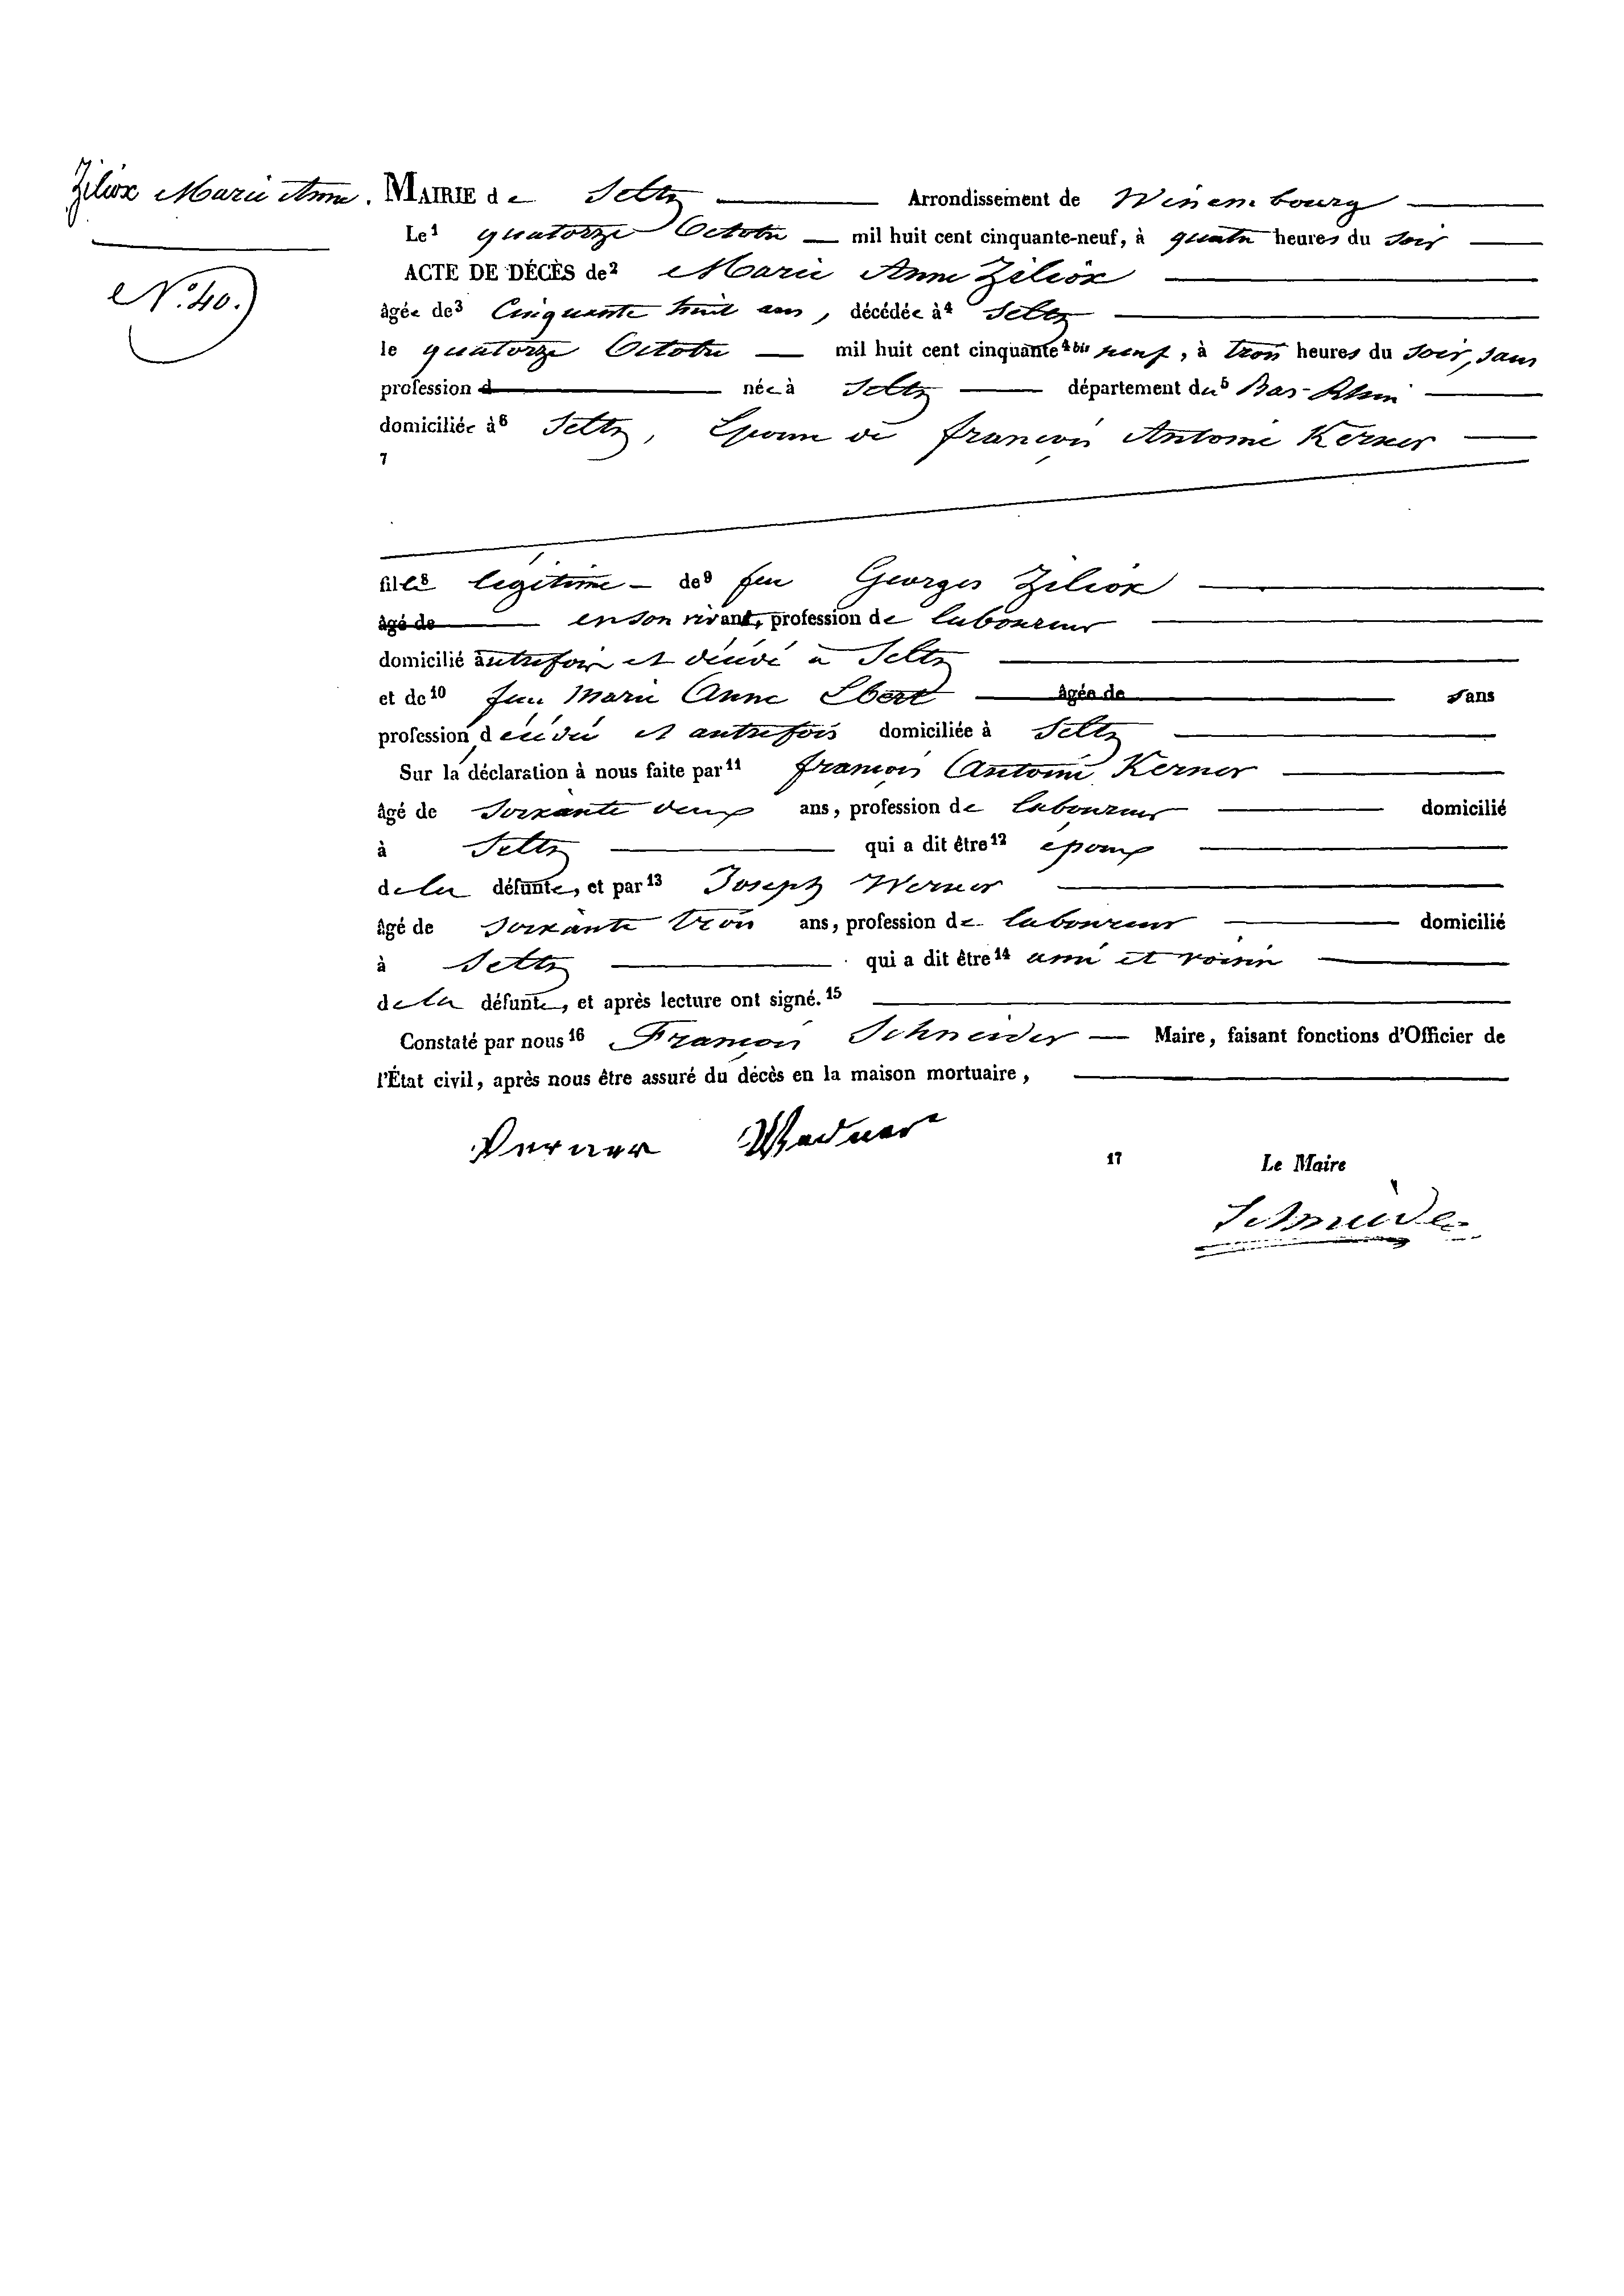 Ziliox Marie Anne.
N.° 40.
MAIRIE de Seltz Arrondissement de Wissembourg
Le¹ quatorze Octobre — mil huit cent cinquante-neuf, à quatre heures du soir
ACTE DE DÉCÈS de² Marie Anne Ziliox
âgée de³ Cinquante huit ans, décédée à⁴ Seltz
le quatorze Octobre — mil huit cent cinquante⁴ ᵇⁱˢ neuf, à trois heures du soir, sans
profession d née à Seltz département du⁵ Bas-Rhin
domiciliée à⁶ Seltz, Epouse de françois Antoine Kerner
7
fille⁸ légitime — de⁹ feu Georges Ziliox
âgé de en son vivant, profession de laboureur
domicilié autrefois et décédé à Seltz
et de¹⁰ feue Marie Anne Eberl âgée de sans
profession, décédée et autrefois domiciliée à Seltz
Sur la déclaration à nous faite par¹¹ françois Antoine Kerner
âgé de soixante deux ans, profession de laboureur domicilié
à Seltz qui a dit être¹² époux
de la défunte, et par¹³ Joseph Werner
âgé de soixante trois ans, profession de laboureur domicilié
à Seltz qui a dit être¹⁴ ami et voisin
de la défunte, et après lecture ont signé.¹⁵
Constaté par nous¹⁶ François Schneider — Maire, faisant fonctions d'Officier de
l'État civil, après nous être assuré du décès en la maison mortuaire,
17 Le Maire
Schneider